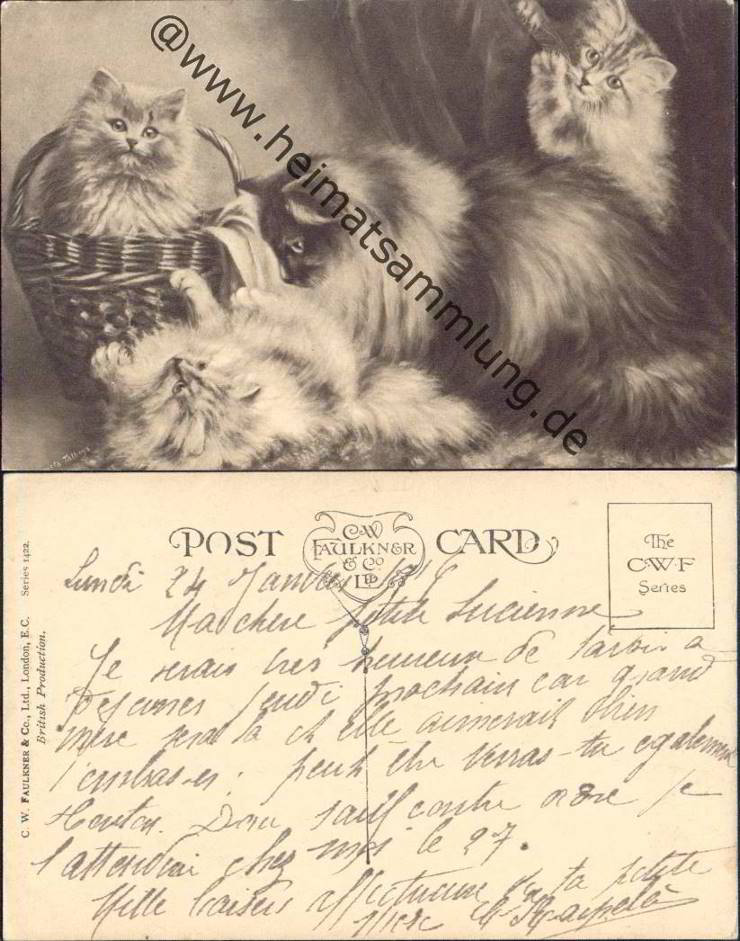 @www.heimatsammlung.de
POST CARD
C.W. FAULKNER & Co LTD
The C.W.F Series
C. W. FAULKNER & Co., Ltd., London, E.C. Series 1422.
British Production.
Lundi 24 Janvier
Ma chère petite Lucienne
Je serais très heureux de t'avoir à
Déjeuner jeudi prochain car grand
mère sera là et elle aimerait bien
t'embrasser; peut être verras-tu également
Donc sauf contre ordre je
t'attendrai chez moi le 27.
Mille baisers affectueux de ta petite